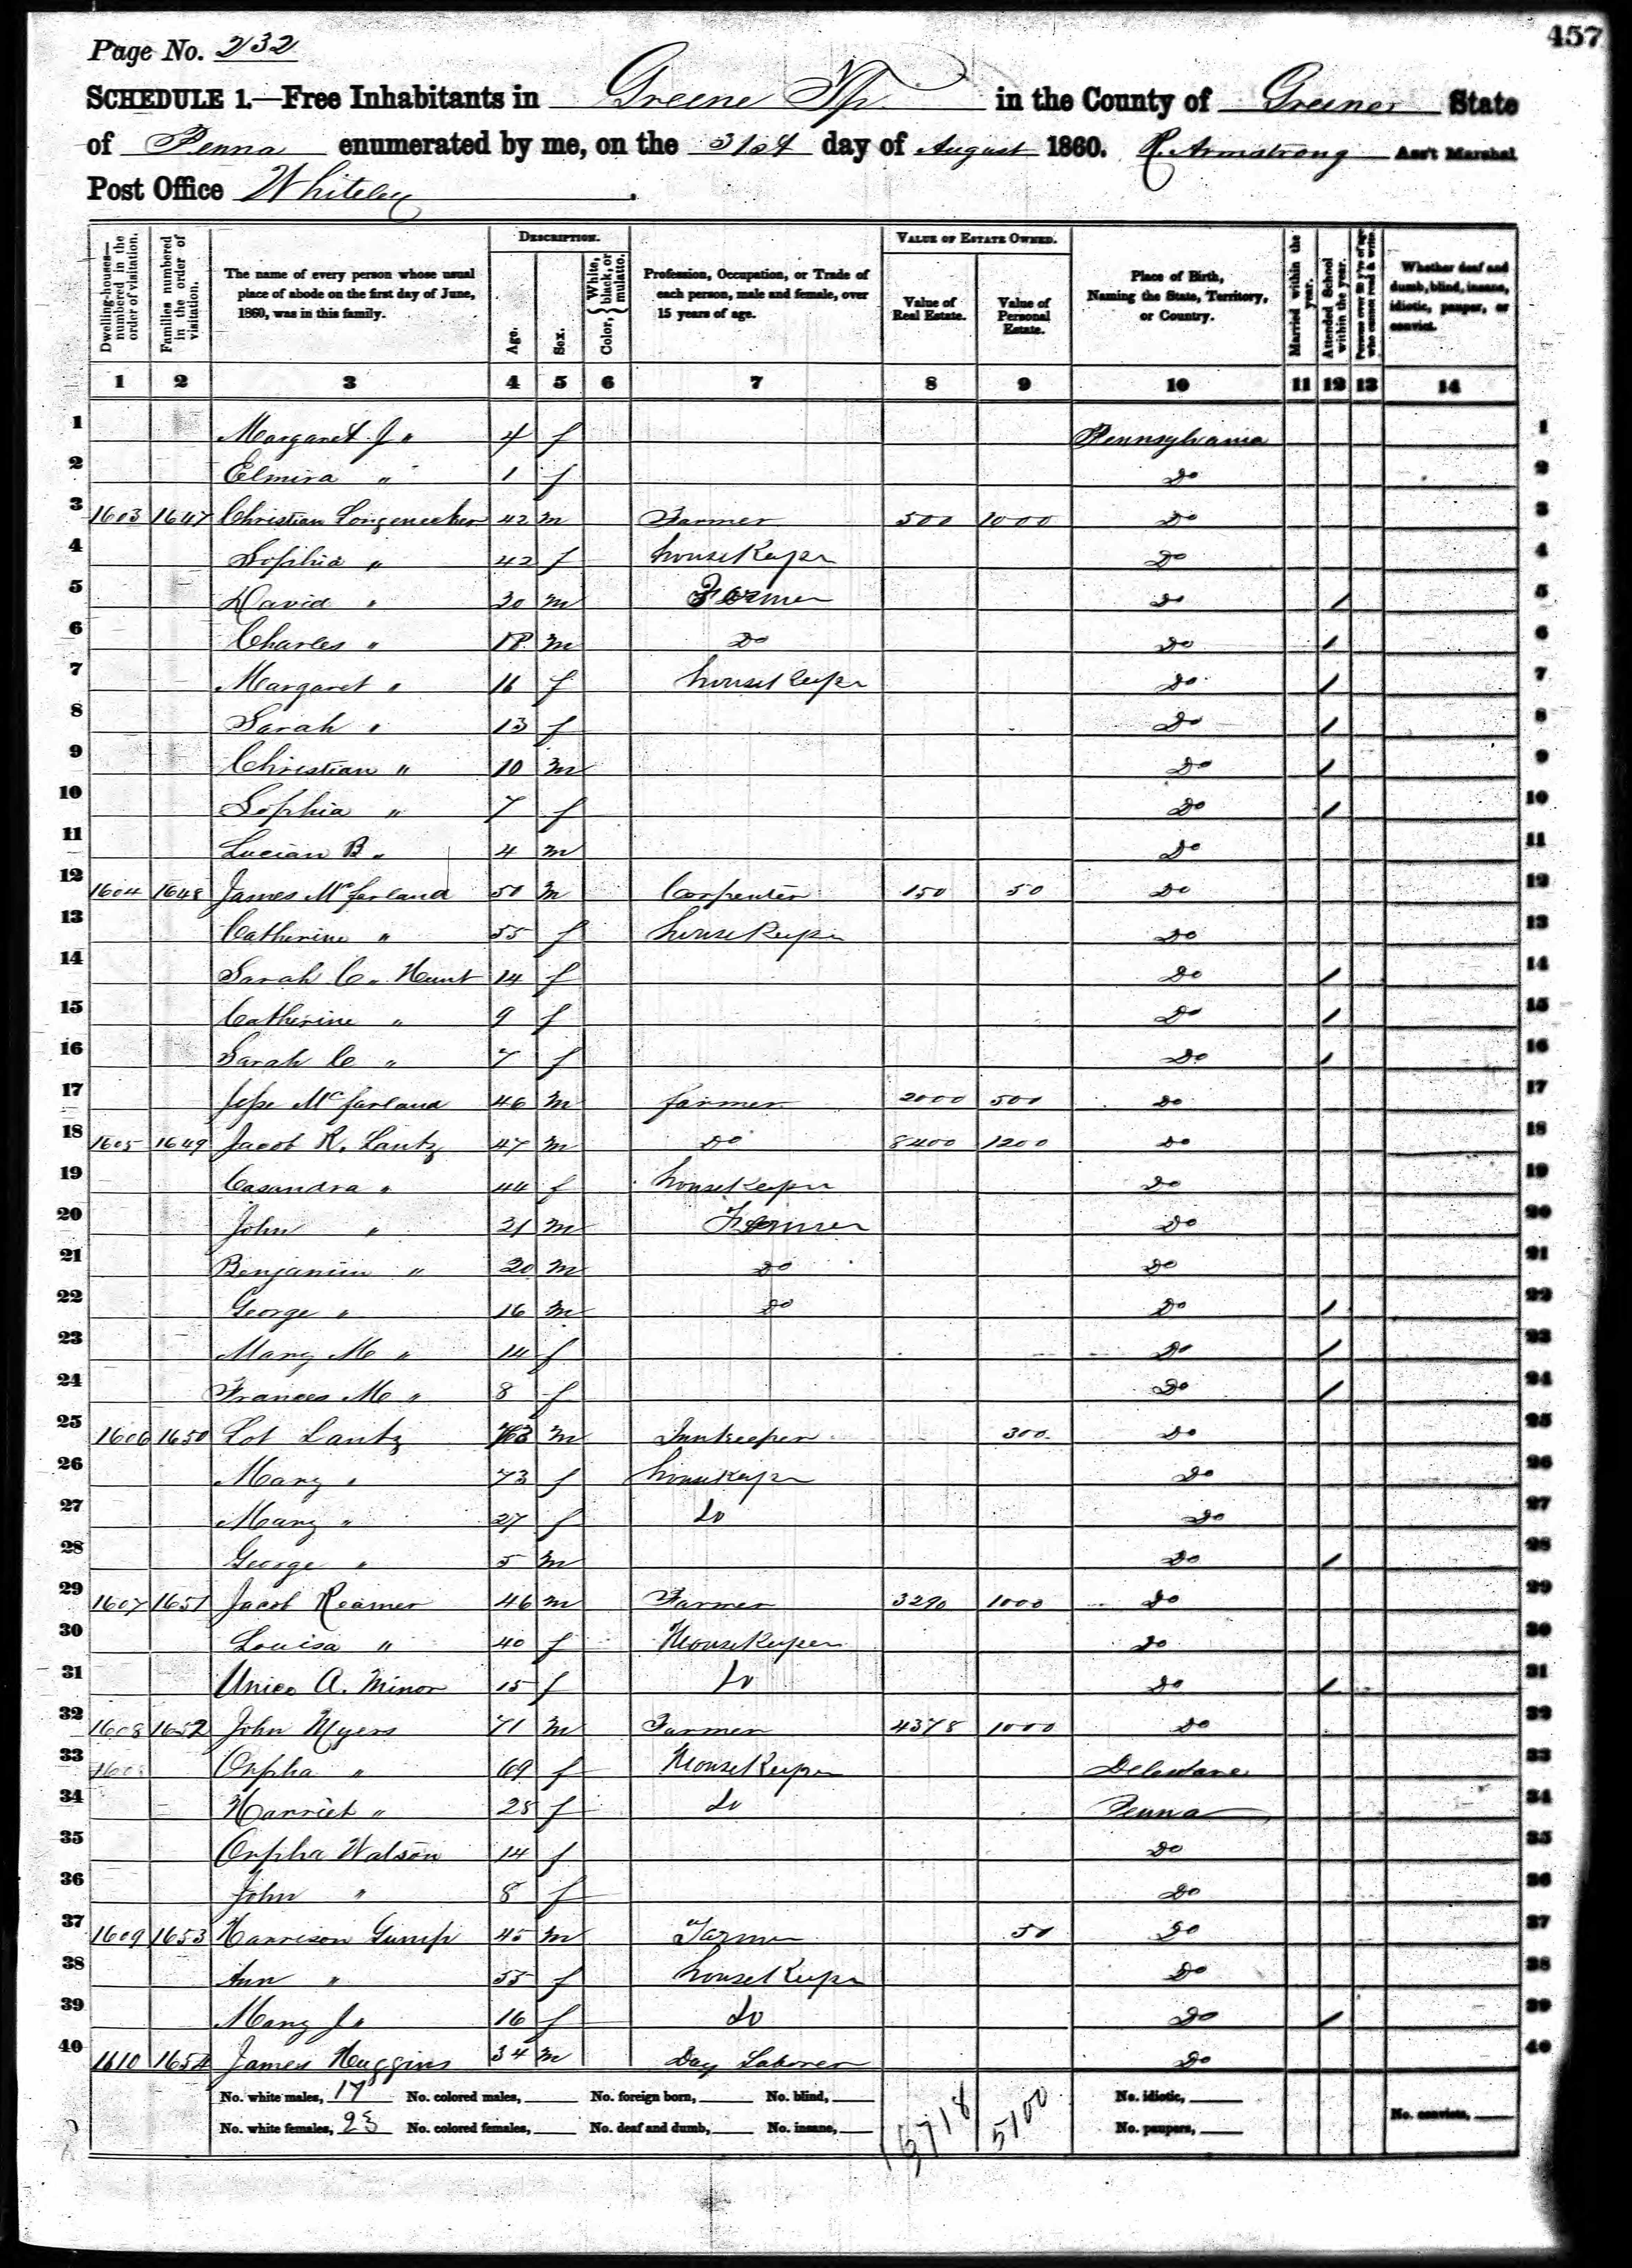 457
Page No. 232
SCHEDULE 1.—Free Inhabitants in Greene Tp. in the County of Greene State
of Penna enumerated by me, on the 31st day of August 1860. R. Armstrong Ass't Marshal
Post Office Whiteley.
Dwelling-houses—numbered in the order of visitation.
Families numbered in the order of visitation.
The name of every person whose usual place of abode on the first day of June, 1860, was in this family.
DESCRIPTION.
Age.
Sex.
Color, { White, black, or mulatto.
Profession, Occupation, or Trade of each person, male and female, over 15 years of age.
VALUE OF ESTATE OWNED.
Value of Real Estate.
Value of Personal Estate.
Place of Birth, Naming the State, Territory, or Country.
Married within the year.
Attended School within the year.
Persons over 20 y'rs of age who cannot read & write.
Whether deaf and dumb, blind, insane, idiotic, pauper, or convict.
1 2 3 4 5 6 7 8 9 10 11 12 13 14
1 Margaret J " 4 f Pennsylvania 1
2 Elmira " 1 f Do 2
3 1603 1647 Christian Longenecker 42 m Farmer 500 1000 Do 3
4 Sophia " 42 f housekeeper Do 4
5 David " 20 m Farmer Do / 5
6 Charles " 18 m Do Do / 6
7 Margaret " 16 f housekeeper Do / 7
8 Sarah " 13 f Do / 8
9 Christian " 10 m Do / 9
10 Sophia " 7 f Do / 10
11 Lucian B " 4 m Do 11
12 1604 1648 James McFarland 50 m Carpenter 150 50 Do 12
13 Catherine " 55 f housekeeper Do 13
14 Sarah C " Hunt 14 f Do / 14
15 Catherine " 9 f Do / 15
16 Sarah C " 7 f Do / 16
17 Jesse McFarland 46 m farmer 2000 500 Do 17
18 1605 1649 Jacob R. Lantz 47 m Do 8400 1200 Do 18
19 Casandra " 44 f housekeeper Do 19
20 John " 21 m Farmer Do 20
21 Benjamin " 20 m Do Do 21
22 George " 16 m Do Do / 22
23 Mary M " 14 f Do / 23
24 Frances M " 8 f Do / 24
25 1606 1650 Lot Lantz m Innkeeper 300 Do 25
26 Mary " 73 f housekeeper Do 26
27 Mary " 27 f Do Do 27
28 George " 5 m Do / 28
29 1607 1651 Jacob Reamer 46 m Farmer 3290 1000 Do 29
30 Louisa " 40 f Housekeeper Do 30
31 A. Minor 15 f Do Do / 31
32 1608 1652 John Myers 71 m Farmer 4378 1000 Do 32
33 Orpha " 69 f Housekeeper Delaware 33
34 Harriet " 28 f Do Penna 34
35 Orpha Watson 14 f Do 35
36 John " 8 f Do 36
37 1609 1653 Harrison Gump 45 m Farmer 50 Do 37
38 Ann " 55 f housekeeper Do 38
39 Mary J " 16 f Do Do / 39
40 1610 1654 James Huggins 34 m Day Laborer Do 40
No. white males, 17 No. colored males, No. foreign born, No. blind, 5100 No. idiotic,
No. white females, 23 No. colored females, No. deaf and dumb, No. insane, No. paupers, No. convicts,